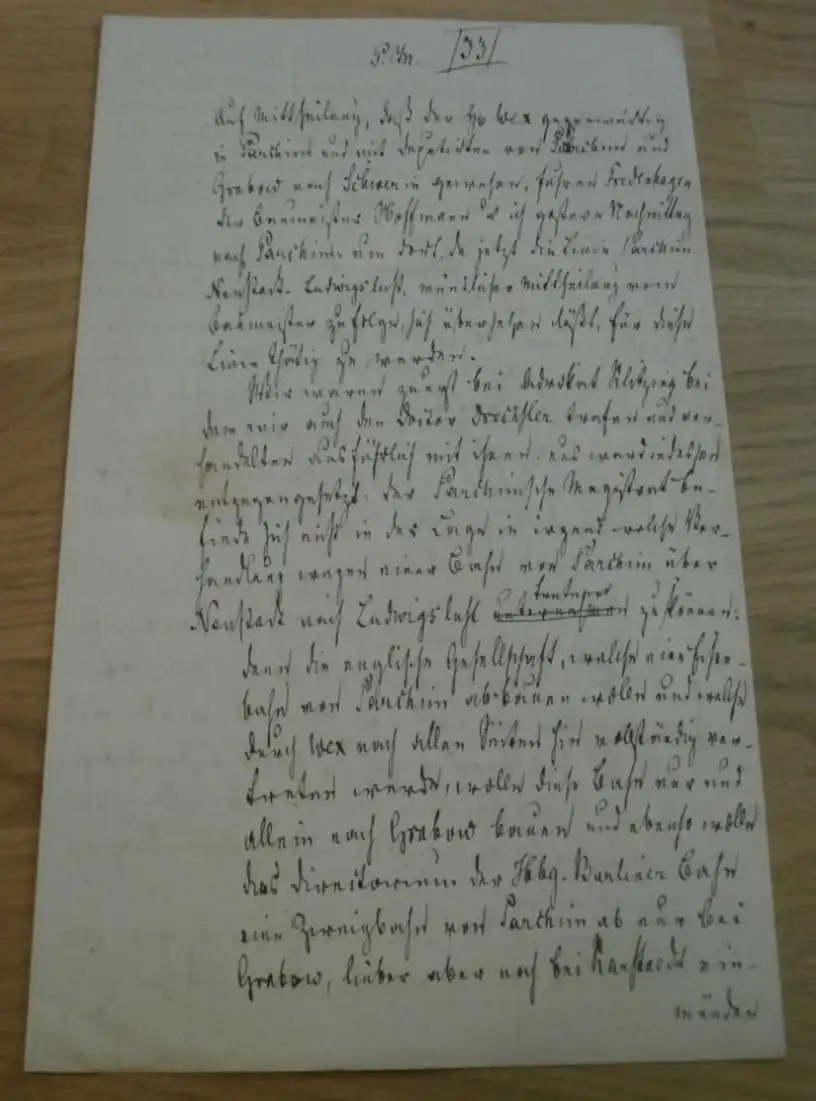 P. M. [33]
Auf Mittheilung, daß der Hr Wex gegenwärtig
in Parchim und mit Deputirten von Parchim und
Grabow nach Schwerin gewesen, fuhren Friedenhagen
der Baumeister Hoffmann u ich gestern Nachmittag
nach Parchim um dort, da jetzt die Linie Parchim
Neustadt-Ludwigslust, mündlicher Mittheilung vom
Baumeister zufolge, sich übersehen läßt, für diese
Linie thätig zu werden.
Wir waren zuerst bei Advokat Klitzing bei
dem wir auch den Doctor Drechsler trafen und ver-
handelten ausführlich mit ihnen. uns ward indessen
entgegengesetzt: der Parchimsche Magistrat be-
finde sich nicht in der Lage in irgend welche Ver-
handlung wegen einer Bahn von Parchim über
Neustadt nach Ludwigslust zu können:
denn die englische Gesellschaft, welche eine Eisen-
bahn von Parchim ab bauen wolle und welche
durch Wex nach allen Seiten hin vollständig ver-
treten werde, wolle diese Bahn nur und
allein nach Grabow bauen und ebenso wolle
das Directorium der Hbg-Berliner Bahn
eine Zweigbahn von Parchim ab nur bei
Grabow, lieber aber noch bei Karstaedt ein-
münden